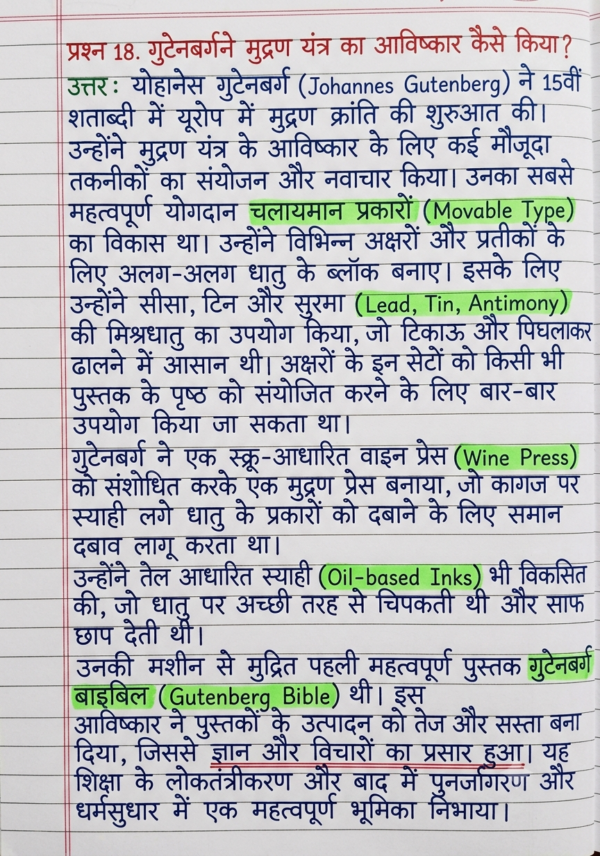 प्रश्न 18. गुटेनबर्गने मुद्रण यंत्र का आविष्कार कैसे किया?
उत्तर: योहानेस गुटेनबर्ग (Johannes Gutenberg) ने 15वीं
शताब्दी में यूरोप में मुद्रण क्रांति की शुरुआत की।
उन्होंने मुद्रण यंत्र के आविष्कार के लिए कई मौजूदा
तकनीकों का संयोजन और नवाचार किया। उनका सबसे
महत्वपूर्ण योगदान चलायमान प्रकारों (Movable Type)
का विकास था। उन्होंने विभिन्न अक्षरों और प्रतीकों के
लिए अलग-अलग धातु के ब्लॉक बनाए। इसके लिए
उन्होंने सीसा, टिन और सुरमा (Lead, Tin, Antimony)
की मिश्रधातु का उपयोग किया, जो टिकाऊ और पिघलाकर
ढालने में आसान थी। अक्षरों के इन सेटों को किसी भी
पुस्तक के पृष्ठ को संयोजित करने के लिए बार-बार
उपयोग किया जा सकता था।
गुटेनबर्ग ने एक स्क्रू-आधारित वाइन प्रेस (Wine Press)
को संशोधित करके एक मुद्रण प्रेस बनाया, जो कागज पर
स्याही लगे धातु के प्रकारों को दबाने के लिए समान
दबाव लागू करता था।
उन्होंने तेल आधारित स्याही (Oil-based Inks) भी विकसित
की, जो धातु पर अच्छी तरह से चिपकती थी और साफ
छाप देती थी।
उनकी मशीन से मुद्रित पहली महत्वपूर्ण पुस्तक गुटेनबर्ग
बाइबिल (Gutenberg Bible) थी। इस
आविष्कार ने पुस्तकों के उत्पादन को तेज और सस्ता बना
दिया, जिससे ज्ञान और विचारों का प्रसार हुआ। यह
शिक्षा के लोकतंत्रीकरण और बाद में पुनर्जागरण और
धर्मसुधार में एक महत्वपूर्ण भूमिका निभाया।